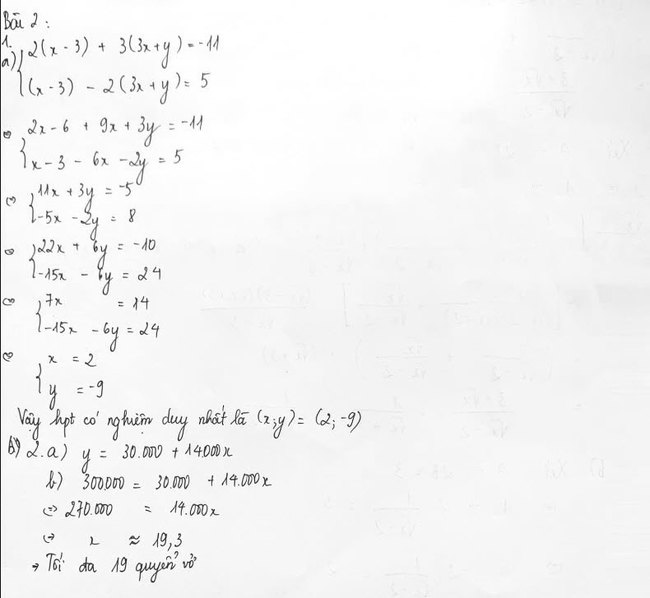 Bài 2:
1.
a) { 2(x - 3) + 3(3x + y) = -11
(x - 3) - 2(3x + y) = 5
⇔ { 2x - 6 + 9x + 3y = -11
x - 3 - 6x - 2y = 5
⇔ { 11x + 3y = -5
-5x - 2y = 8
⇔ { 22x + 6y = -10
-15x - 6y = 24
⇔ { 7x = 14
-15x - 6y = 24
⇔ { x = 2
y = -9
Vậy hpt có nghiệm duy nhất là (x; y) = (2; -9)
b) 2. a) y = 30.000 + 14000x
b) 300.000 = 30.000 + 14.000x
⇔ 270.000 = 14.000x
⇔ x ≈ 19,3
→ Tối đa 19 quyển vở